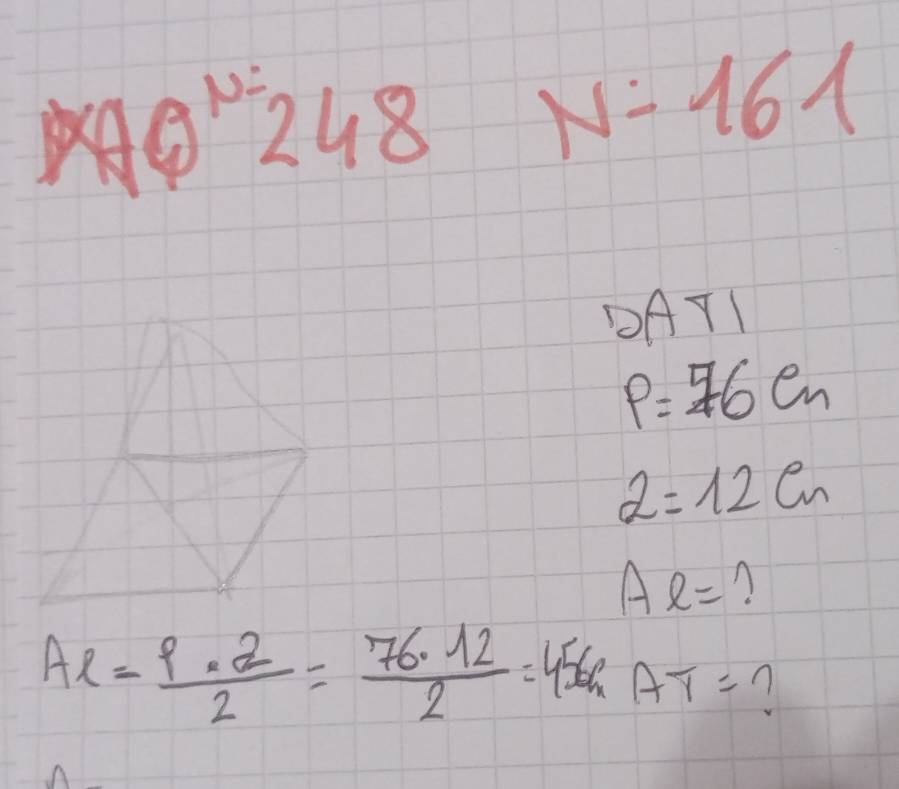 AQ N= 248 N= 161
DATI
P= 76 Cm
a= 12 Cm
Al= ?
Al = P · a / 2 = 76 · 12 / 2 = 456cm
AT = ?